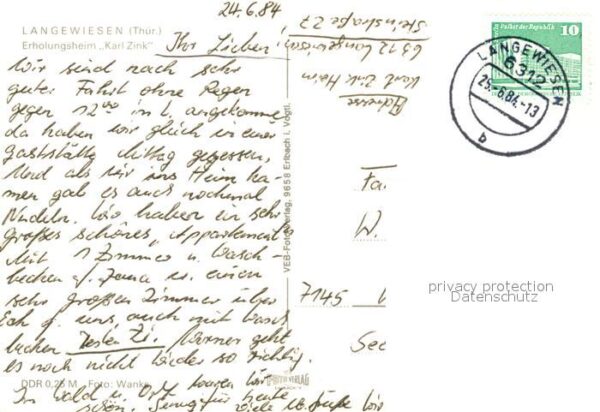 24.6.84
LANGEWIESEN (Thür.)
Erholungsheim „Karl Zink"
Ihr Lieben!
Wir sind nach sehr
guter Fahrt ohne Regen
gegen 12⁰⁰ in L. angekommen
da haben wir gleich in einer
Gaststätte Mittag gegessen,
Und als wir ins Heim ka-
men gab es auch nochmal
Nudeln. Wir haben ein sehr
großes schönes Appartement
Mit 1 Zimmer u. Wasch-
becken f. Jana u. einen
sehr großen Zimmer über
Eck f. uns auch mit Wasch
becken. Zi. Wärmer geht
es noch nicht wieder so richtig.
Im Wald u. Ort waren wir
schon. Genug für heute
viele
Adresse
Karl Zink Heim
6312 Langewiesen
Steinstraße 27
VEB-Foto-Verlag, 9658 Erlbach i. Vogtl.
Palast der Republik 10
LANGEWIESEN
6312
25.-6.84.-13
b
Fa
W.
7145
See
privacy protection
Datenschutz
DDR 0,25 M Foto: Wanke